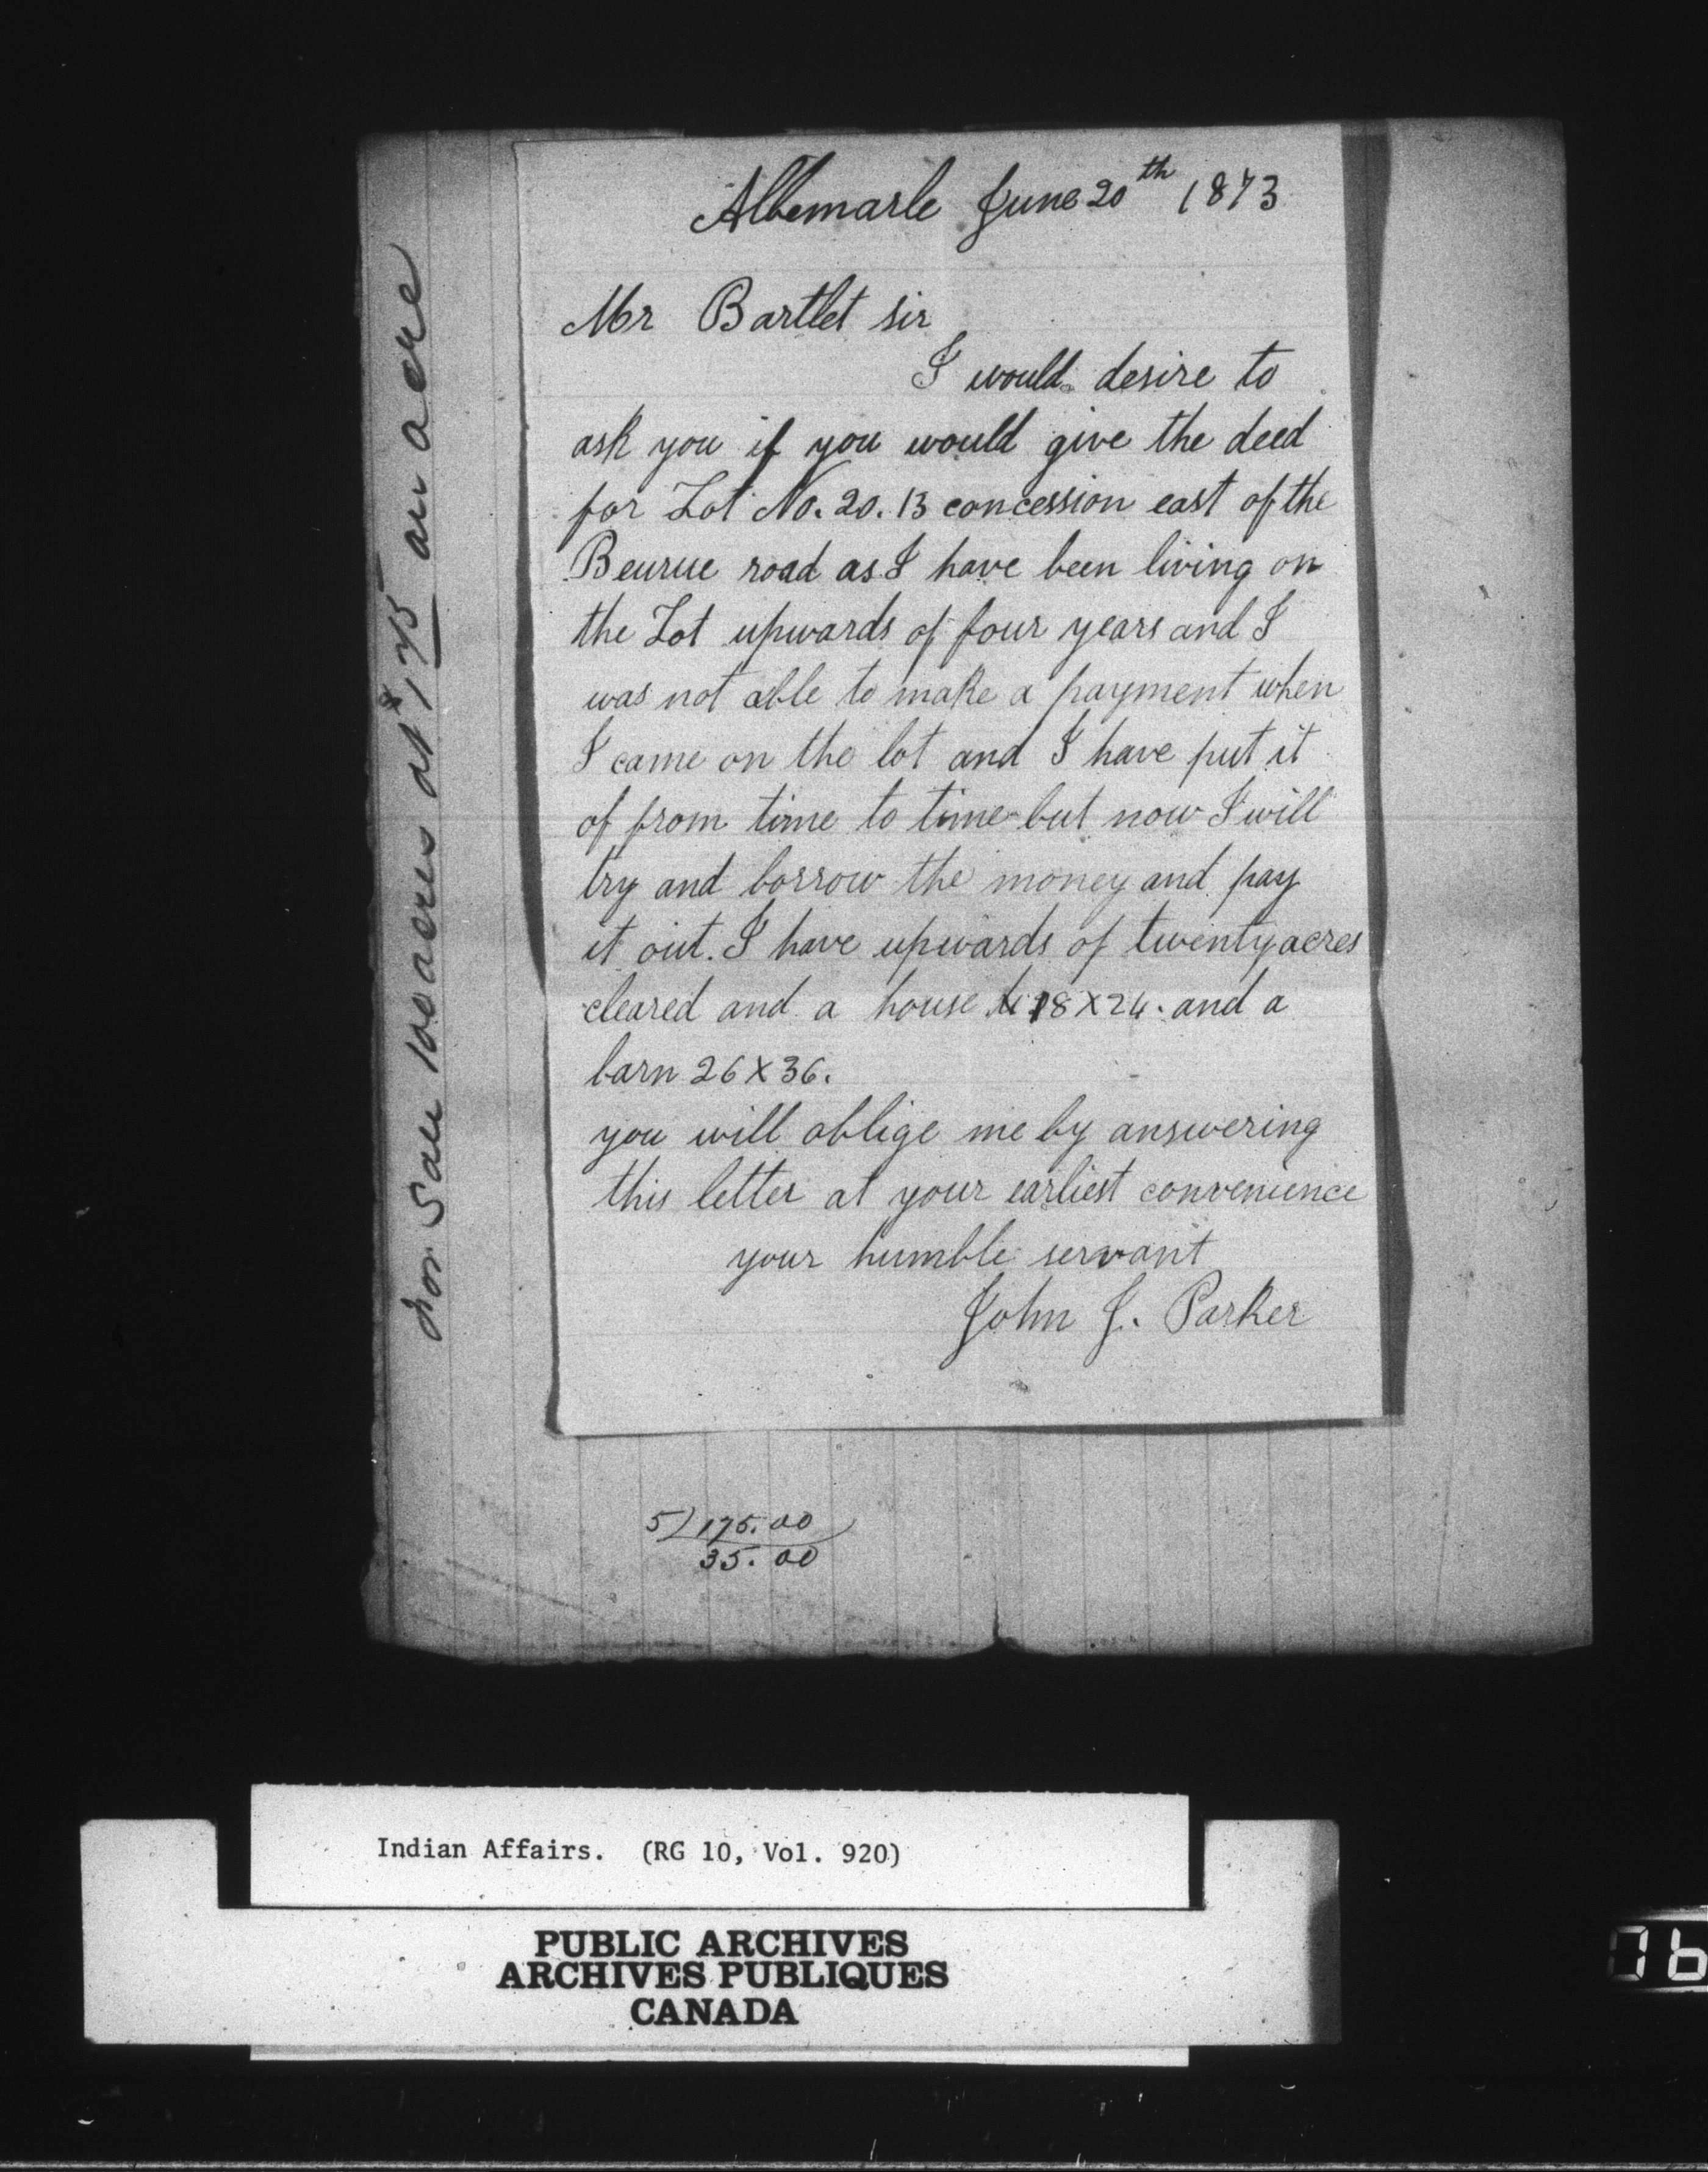 Albemarle June 20th 1873
Mr Bartlet sir
I would desire to
ask you if you would give the deed
for Lot No. 20. 13 concession east of the
Beurue road as I have been living on
the Lot upwards of four years and I
was not able to make a payment when
I came on the lot and I have put it
of from time to time but now I will
try and borrow the money and pay
it out. I have upwards of twenty acres
cleared and a house 18 X 24. and a
barn 26 X 36.
you will oblige me by answering
this letter at your earliest convenience
your humble servant
John J. Parker
Sale 100 acres at $1.75 an acre
5) 175.00
35.00
Indian Affairs. (RG 10, Vol. 920)
PUBLIC ARCHIVES
ARCHIVES PUBLIQUES
CANADA